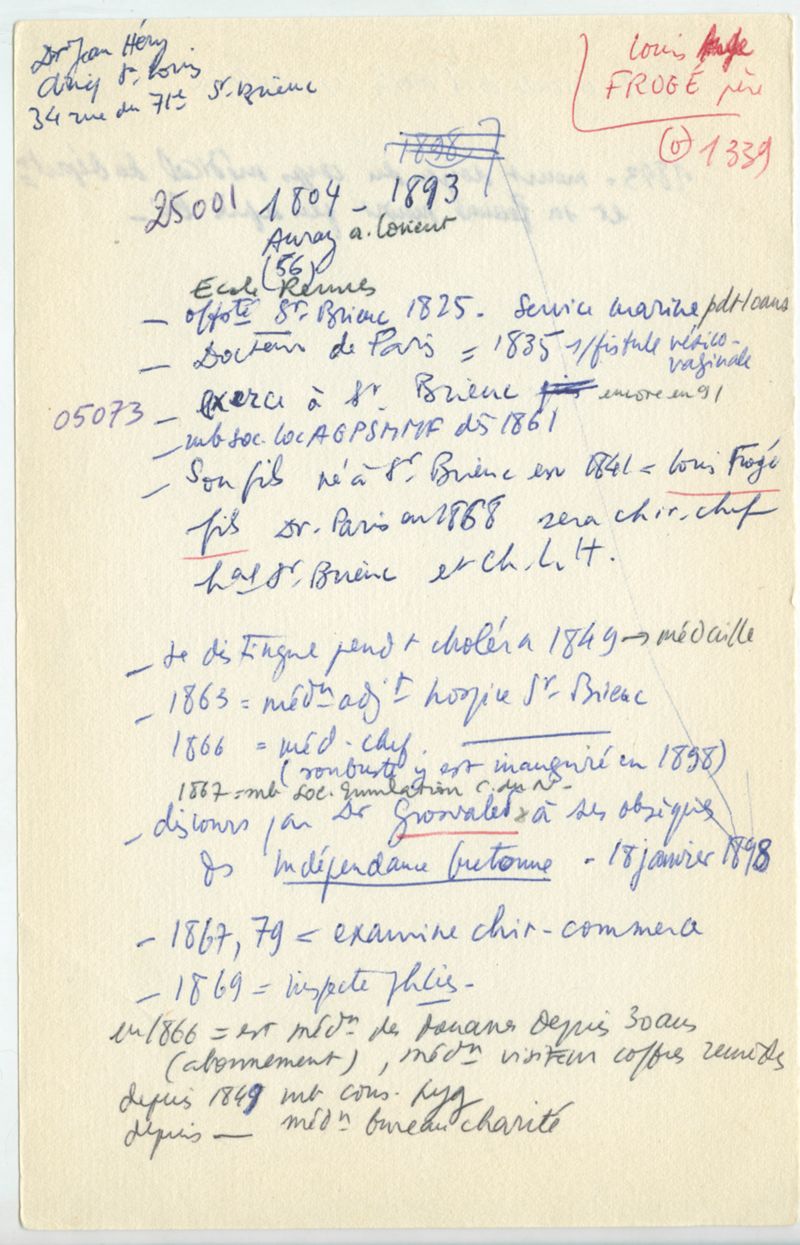 Dr Jean Héry
cliniq St. Louis
34 rue du 71e St. Brieuc
Louis Ange
FROGÉ père
1339
1898
25001 1804 - 1893
Auray a. Lorient
(56)
Ecole Rennes
- offsté St. Brieuc 1825. Service marine pdt 10 ans
- Docteur de Paris = 1835 s/fistule vésico-
vaginale
05073 - exerce à St. Brieuc encore en 91
- mb soc. loc AGPSMMF dès 1861
- Son fils né à St. Brieuc en 1841 = Louis Frogé
fils Dr. Paris en 1868 sera chir. chef
hal St. Brieuc et Ch. L. H.
- se distingue pendt choléra 1849 → médaille
- 1863 = médn adjt hospice St. Brieuc
1866 = méd. chef.
(son buste y est inauguré en 1898)
1867 = mb soc. Emulation C. du N.
- discours par Dr Grosvalet à ses obsèques
ds Indépendance bretonne - 18 janvier 1898
- 1867, 79 = examine chir. commerce
- 1869 = inspecte phcies.
en 1866 = est médn des Douanes depuis 30 ans
(abonnement), médn visiteur coffres remèdes
depuis 1849 mb cons. hyg
depuis — médn bureau charité